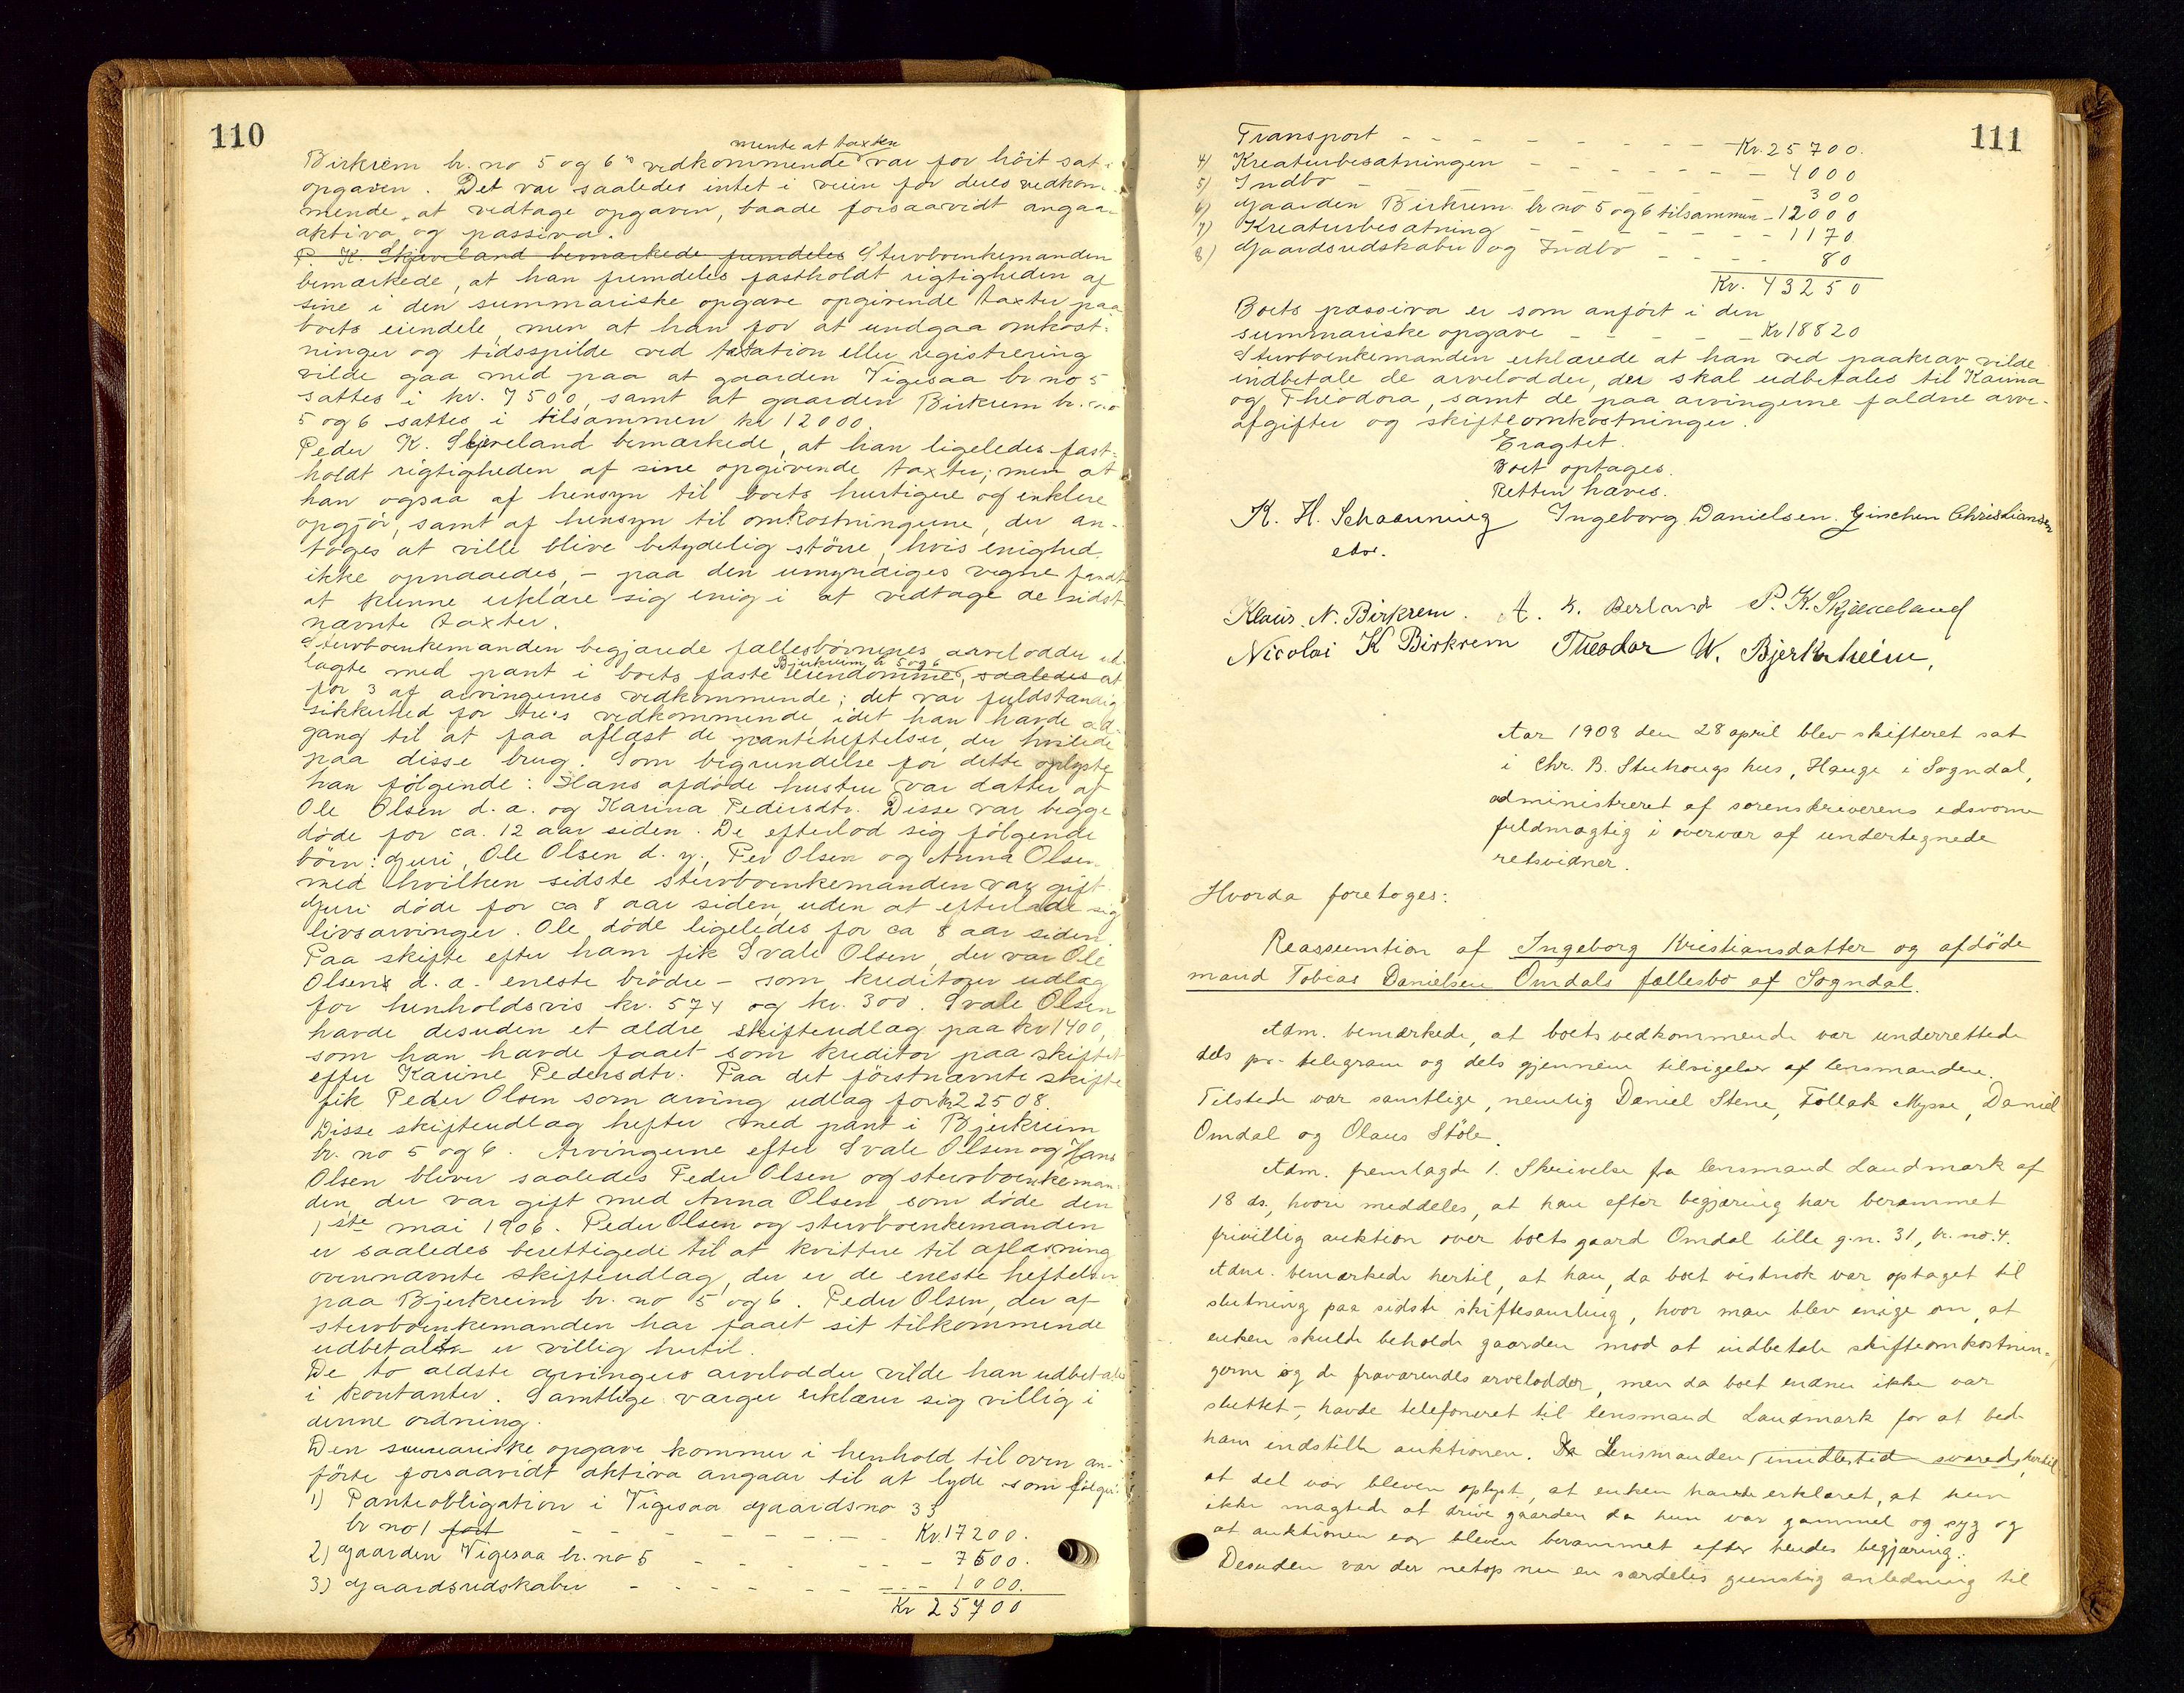 110
mente at taxten
Birkrem br. no 5 og 6's vedkommende var for höit sat i
opgaven. Det var saaledes intet i veien for deres vedkom-
mende, at vedtage opgaven, baade forsaavidt angaar
aktiva og passiva.
P. K. Skjæveland bemærkede fremdeles Stervboenkemanden
bemærkede, at han fremdeles fastholdt rigtigheden af
sine i den summariske opgave opgivende taxter paa
boets eiendele, men at han for at undgaa omkost-
ninger og tidsspilde ved taxation eller registrering
vilde gaa med paa at gaarden Vigesaa br no 5
sattes i kr. 7500, samt at gaarden Birkrem br. no
5 og 6 sattes i tilsammen kr 12000.
Peder K. Skjeveland bemærkede, at han ligeledes fast-
holdt rigtigheden af sine opgivende taxter; men at
han ogsaa af hensyn til boets hurtigere og enklere
opgjör, samt af hensyn til omkostningerne, der an-
toges at ville blive betydelig större, hvis enighed
ikke opnaaedes, - paa den umyndiges vegne fandt
at kunne erklære sig enig i at vedtage de sidst
nævnte taxter.
Stervboenkemanden begjærede fællesbörnenes arvelodder ud-
Bjerkreim br 5 og 6
lagte med pant i boets faste eiendomme, saaledes at
for 3 af arvingernes vedkommende; det var fuldstændig
sikkerhed for tre's vedkommende, idet han havde ad-
gang til at faa aflæst de pantehæftelser, der hvilede
paa disse brug. Som begrundelse for dette oplyste
han følgende: Hans afdøde hustru var datter af
Ole Olsen d. æ. og Karina Pedersdtr. Disse var begge
døde for ca. 12 aar siden. De efterlod sig fölgende
börn: Guri, Ole Olsen d. y., Per Olsen og Anna Olsen
med hvilken sidste stervboenkemanden var gift.
Guri döde for ca 8 aar siden, uden at efterlade sig
livsarvinger. Ole döde ligeledes for ca 8 aar siden.
Paa skifte efter ham fik Svale Olsen, der var Ole
Olsens d. æ. eneste brödre - som kreditorer udlæg
for henholdsvis kr. 574 og kr. 300. Svale Olsen
havde desuden et ældre skifteudlæg paa kr 1400,
som han havde faaet som kreditor paa skiftet
efter Karine Pedersdtr. Paa det förstnævnte skifte
fik Peder Olsen som arving udlæg for kr 2508.
Disse skifteudlæg hefter med pant i Bjerkreim
br. no 5 og 6. Arvingerne efter Svale Olsen og Hans
Olsen bliver saaledes Peder Olsen og stervboenkeman-
den, der var gift med Anna Olsen, som döde den
1ste mai 1906. Peder Olsen og stervboenkemanden
er saaledes berettigede til at kvittere til aflæsning
ovennævnte skifteudlæg, der er de eneste heftelser
paa Bjerkreim br. no 5 og 6. Peder Olsen, der af
stervboenkemanden har faaet sit tilkommende
udbetalt er villig hertil.
De to ældste arvingers arvelodder vilde han udbetale
i kontanter. Samtlige værger erklærer sig villig i
denne ordning.
Den summariske opgave kommer i henhold til oven an-
förte forsaavidt aktiva angaar til at lyde som fölger:
1) Panteobligation i Vigesaa gaardsno 33
br no 1 fort - - - - - - - Kr. 17200.
2) Gaarden Vigesaa br. no 5 - - - - - 7500.
3) Gaardsredskaber - - - - - - - 1000.
Kr 25700
111
Transport - - - - - - - - Kr. 25700.
4) Kreaturbesætningen - - - - - - 4000
5) Indbo - - - - - - - 300
6) Gaarden Birkrem br no 5 og 6 tilsammen - 12000
7) Kreaturbesætning - - - - - - 1170
8) Gaardsredskaber og Indbo - - - - 80
Kr. 43250
Boets passiva er som anfört i den
summariske opgave - - - - - Kr 18820
Stervboenkemanden erklærede at han ved paakrav vilde
indbetale de arvelodder, der skal udbetales til Karina
og Theodora, samt de paa arvingerne faldne arve-
afgifter og skifteomkostninger.
Eragtet.
Boet optages.
Retten hæves.
K. H. Schaanning Ingeborg Danielsen. Ginchen Christiansen
edsv.
Klaus. N. Birkrem. A. K. Berland P. K. Skjæveland
Nicolai K Birkrem Theodor W. Bjerkreim,
Aar 1908 den 28 april blev skifteret sat
i Chr. B. Stuhougs hus, Hauge i Sogndal,
administreret af sorenskriverens edsvorne
fuldmægtig i overvær af undertegnede
retsvidner.
Hvorda foretoges:
Reassumtion af Ingeborg Kristiansdatter og afdöde
mand Tobias Danielsen Omdals fællesbo af Sogndal.
Adm. bemærkede, at boets vedkommende var underrettede
dels pr. telegram og dels gjennem tilsigelse af lensmanden.
Tilstede var samtlige, nemlig Daniel Stene, Tollak Mysse, Daniel
Omdal og Olaus Stöle.
Adm. fremlagde 1. Skrivelse fra lensmand Landmark af
18 ds., hvori meddeles, at han efter begjæring har berammet
frivillig auktion over boets gaard Omdal lille g.n. 31, br. no. 4.
Adm. bemærkede hertil, at han, da boet vistnok var optaget til
slutning paa sidste skiftesamling, hvor man blev enige om, at
enken skulde beholde gaarden mod at indbetale skifteomkostnin-
gerne og de fraværendes arvelodder, men da boet endnu ikke var
sluttet -, havde telefoneret til lensmand Landmark for at bed
ham indstille auktionen. Da Lensmanden imidlertid svarede hertil,
at det var bleven oplyst, at enken havde erklæret, at hun
ikke magtede at drive gaarden da hun var gammel og syg og
at auktionen var bleven berammet efter hendes begjæring.
Desuden var der netop nu en særdeles gunstig anledning til